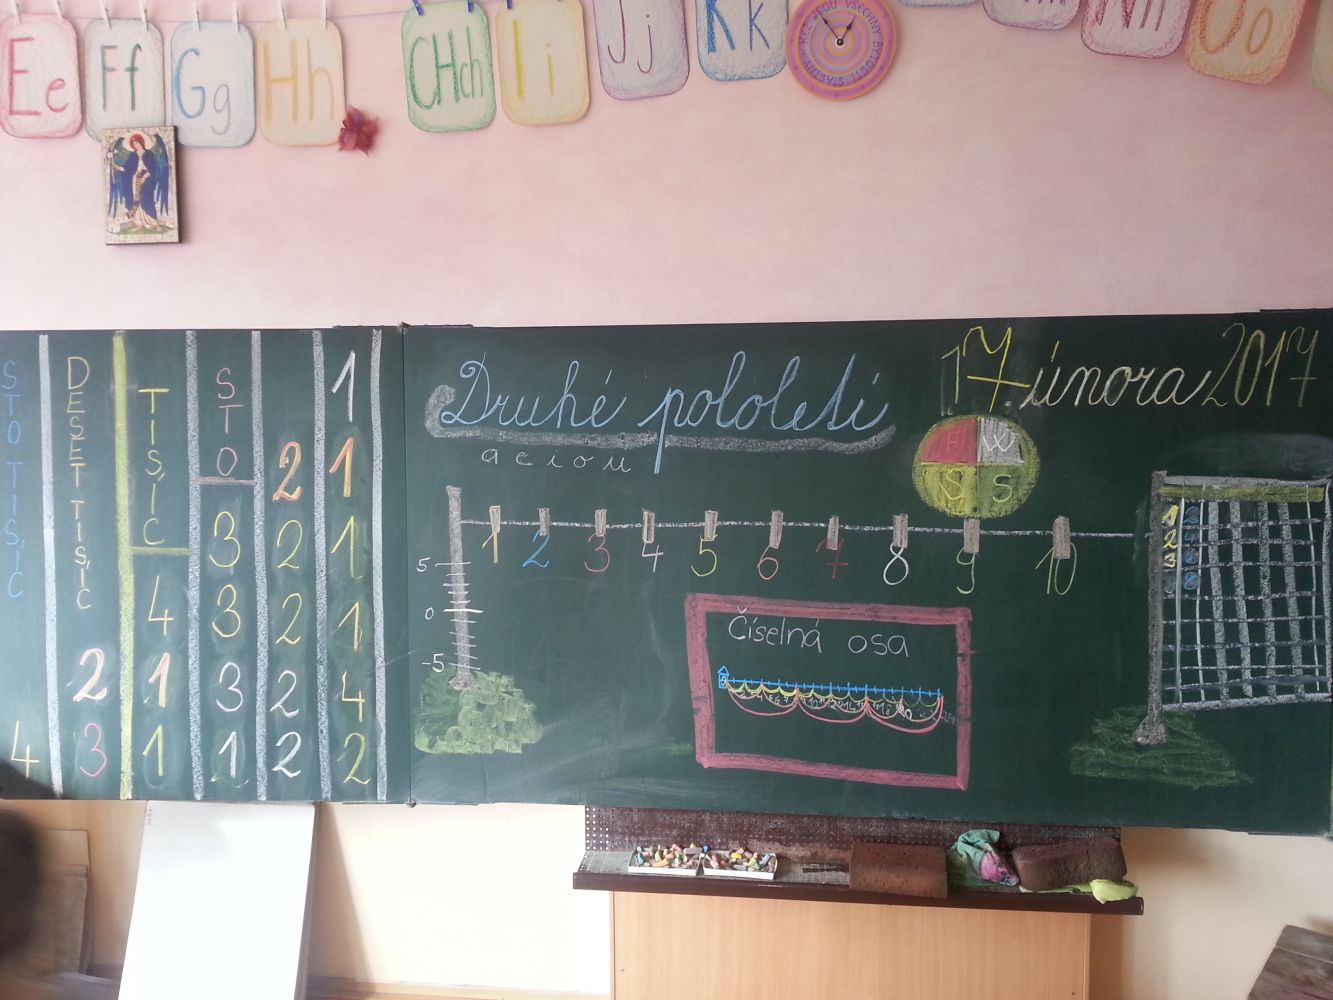 Ee Ff Gg Hh CHch Ii Jj Kk Oo
KÉŽ JSOU VŠECHNY BYTOSTI ŠŤASTNY
STO TISÍC
DESET TISÍC
TISÍC
STO
1
2 1
3 2 1
4 3 2 1
2 1 3 2 4
4 3 1 1 2 2
Druhé pololetí
17. února 2017
a e i o u
F W
S S
1 2 3 4 5 6 7 8 9 10
5
0
-5
Číselná osa